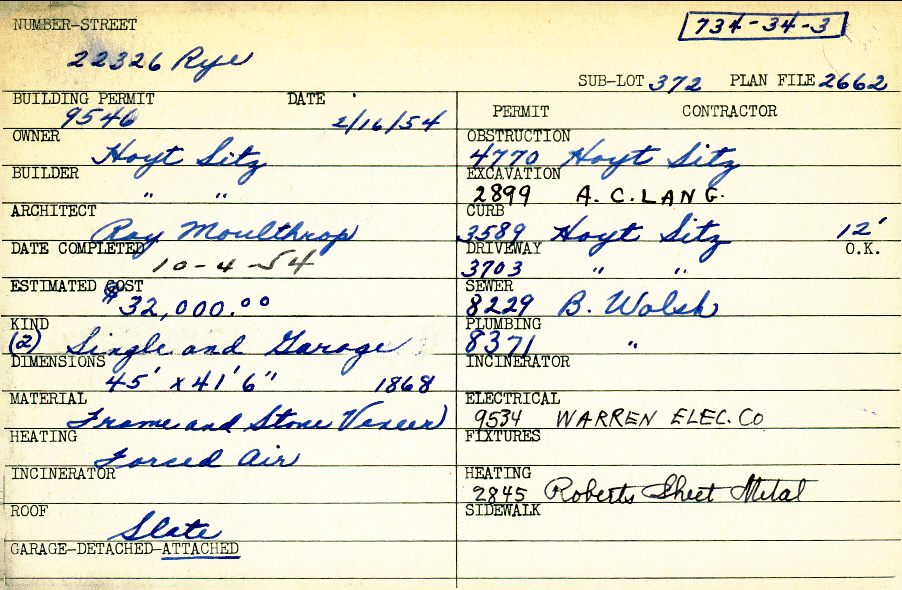 NUMBER-STREET
734-34-3
22326 Rye
SUB-LOT 372 PLAN FILE 2662
BUILDING PERMIT DATE
9546 2/16/54
OWNER
Hoyt Sitz
BUILDER
" "
ARCHITECT
Ray Moulthrop
DATE COMPLETED
10-4-54
ESTIMATED COST
$32,000.00
KIND
(2) Single and Garage
DIMENSIONS
45' x 41' 6" 1868
MATERIAL
Frame and Stone Veneer
HEATING
Forced Air
INCINERATOR
ROOF
Slate
GARAGE-DETACHED-ATTACHED
PERMIT CONTRACTOR
OBSTRUCTION
4770 Hoyt Sitz
EXCAVATION
2899 A.C. LANG.
CURB
3589 Hoyt Sitz 12'
DRIVEWAY O.K.
3703 " "
SEWER
8229 B. Walsh
PLUMBING
8371 "
INCINERATOR
ELECTRICAL
9534 WARREN ELEC. CO
FIXTURES
HEATING
2845 Roberts Sheet Metal
SIDEWALK